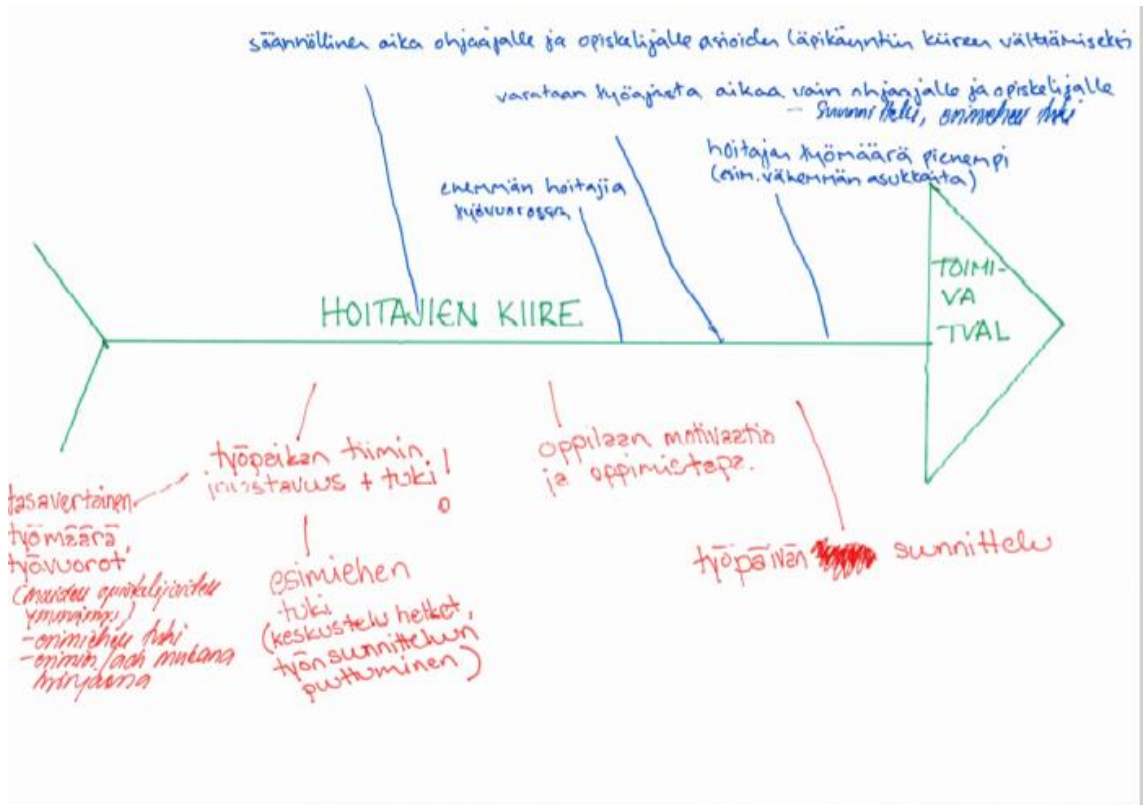 säännöllinen aika ohjaajalle ja opiskelijalle asioiden läpikäyntiin kiireen välttämiseksi
varataan työajasta aikaa vain ohjaajalle ja opiskelijalle
- suunnittelu, esimiehen tuki
hoitajan työmäärä pienempi
(esim. vähemmän asukkaita)
enemmän hoitajia
työvuorossa
HOITAJIEN KIIRE
TOIMI-
VA
TVAL
työpaikan tiimin
joustavuus + tuki!
tasavertainen
työmäärä,
työvuorot
(muiden
- esimiehen tuki
mukana
esimiehen
tuki
(keskustelu hetket,
työn sunnitteluun
puttuminen)
oppilaan motivaatio
ja oppimistapa.
työpäivän sunnittelu